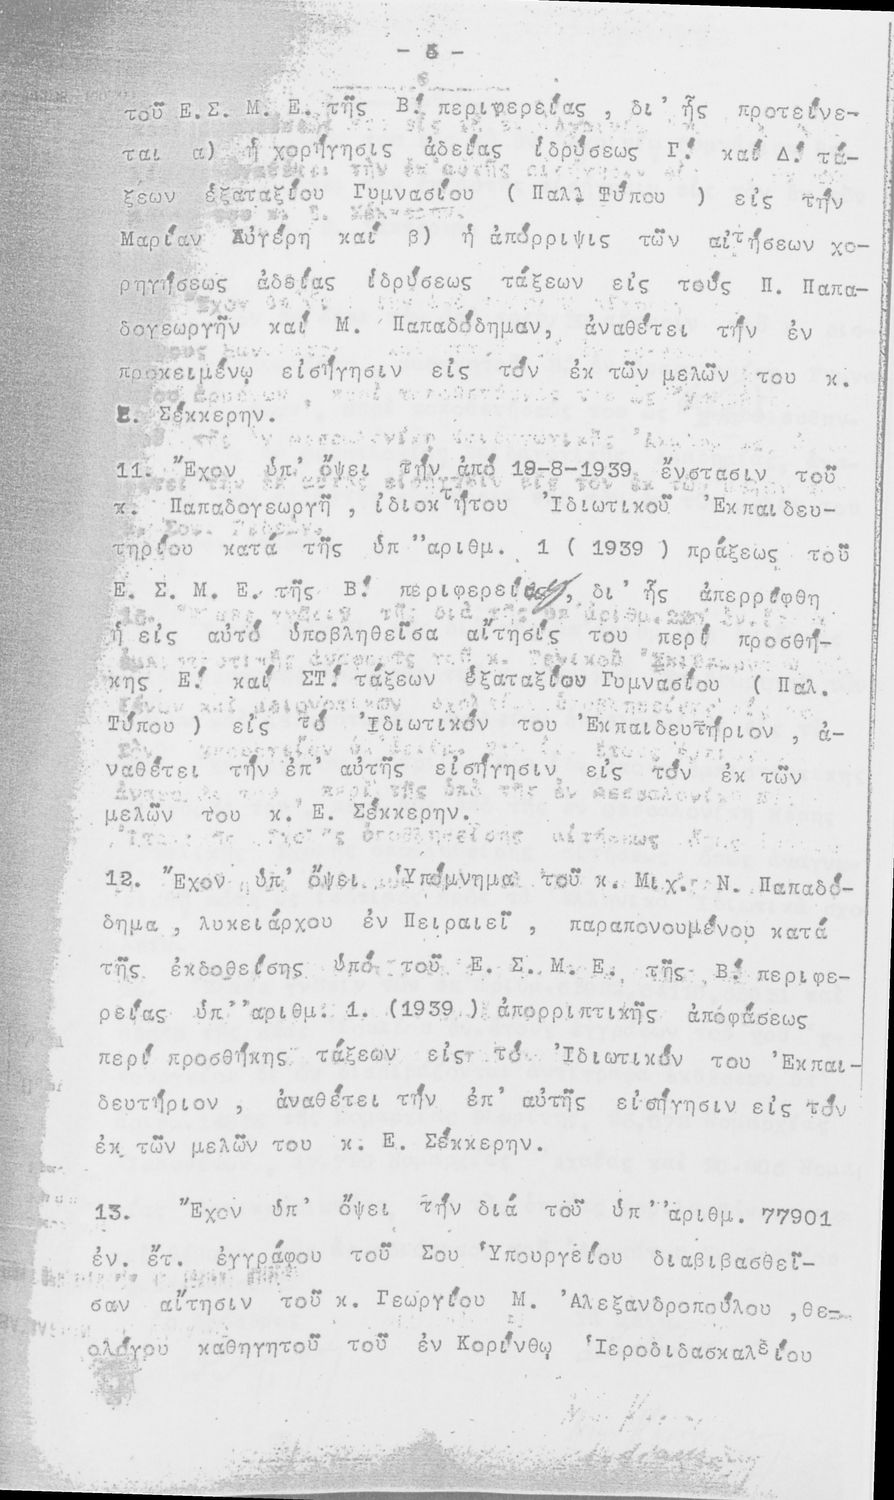 - 5 -
τοῦ Ε.Σ. Μ. Ε. τῆς Β! περιφερείας , δι' ἧς προτείνε-
ται α) ἡ χορήγησις ἀδείας ἱδρύσεως Γ! καί Δ! τά-
ξεων ἑξαταξίου Γυμνασίου ( Παλ. Τύπου ) εἰς τήν
Μαρίαν Αὐγέρη καί β) ἡ ἀπόρριψις τῶν αἰτήσεων χο-
ρηγήσεως ἀδείας ἱδρύσεως τάξεων εἰς τούς Π. Παπα-
δογεωργῆν καί Μ. Παπαδόδημαν, ἀναθέτει τήν ἐν
προκειμένῳ εἰσήγησιν εἰς τόν ἐκ τῶν μελῶν του κ.
Ε. Σέκκερην.
11. Ἔχον ὑπ' ὄψει τήν ἀπό 19-8-1939 ἔνστασιν τοῦ
κ. Παπαδογεωργῆ , ἰδιοκτήτου Ἰδιωτικοῦ Ἐκπαιδευ-
τηρίου κατά τῆς ὑπ''ἀριθμ. 1 ( 1939 ) πράξεως τοῦ
Ε. Σ. Μ. Ε. τῆς Β! περιφερείας , δι' ἧς ἀπερρίφθη
ἡ εἰς αὐτό ὑποβληθεῖσα αἴτησίς του περί προσθή-
κης Ε! καί ΣΤ! τάξεων ἑξαταξίου Γυμνασίου ( Παλ.
Τύπου ) εἰς τό Ἰδιωτικόν του Ἐκπαιδευτήριον , ἀ-
ναθέτει τήν ἐπ' αὐτῆς εἰσήγησιν εἰς τόν ἐκ τῶν
μελῶν του κ. Ε. Σέκκερην.
12. Ἔχον ὑπ' ὄψει Ὑπόμνημα τοῦ κ. Μιχ. Ν. Παπαδό-
δημα , λυκειάρχου ἐν Πειραιεῖ , παραπονουμένου κατά
τῆς ἐκδοθείσης ὑπό τοῦ Ε. Σ. Μ. Ε. τῆς Β! περιφε-
ρείας ὑπ''ἀριθμ. 1. (1939 ) ἀπορριπτικῆς ἀποφάσεως
περί προσθήκης τάξεων εἰς τό Ἰδιωτικόν του Ἐκπαι-
δευτήριον , ἀναθέτει τήν ἐπ' αὐτῆς εἰσήγησιν εἰς τόν
ἐκ τῶν μελῶν του κ. Ε. Σέκκερην.
13. Ἔχον ὑπ' ὄψει τήν διά τοῦ ὑπ''ἀριθμ. 77901
ἐν. ἔτ. ἐγγράφου τοῦ Σου Ὑπουργείου διαβιβασθεῖ-
σαν αἴτησιν τοῦ κ. Γεωργίου Μ. Ἀλεξανδροπούλου ,θε-
ολόγου καθηγητοῦ τοῦ ἐν Κορίνθῳ Ἱεροδιδασκαλείου